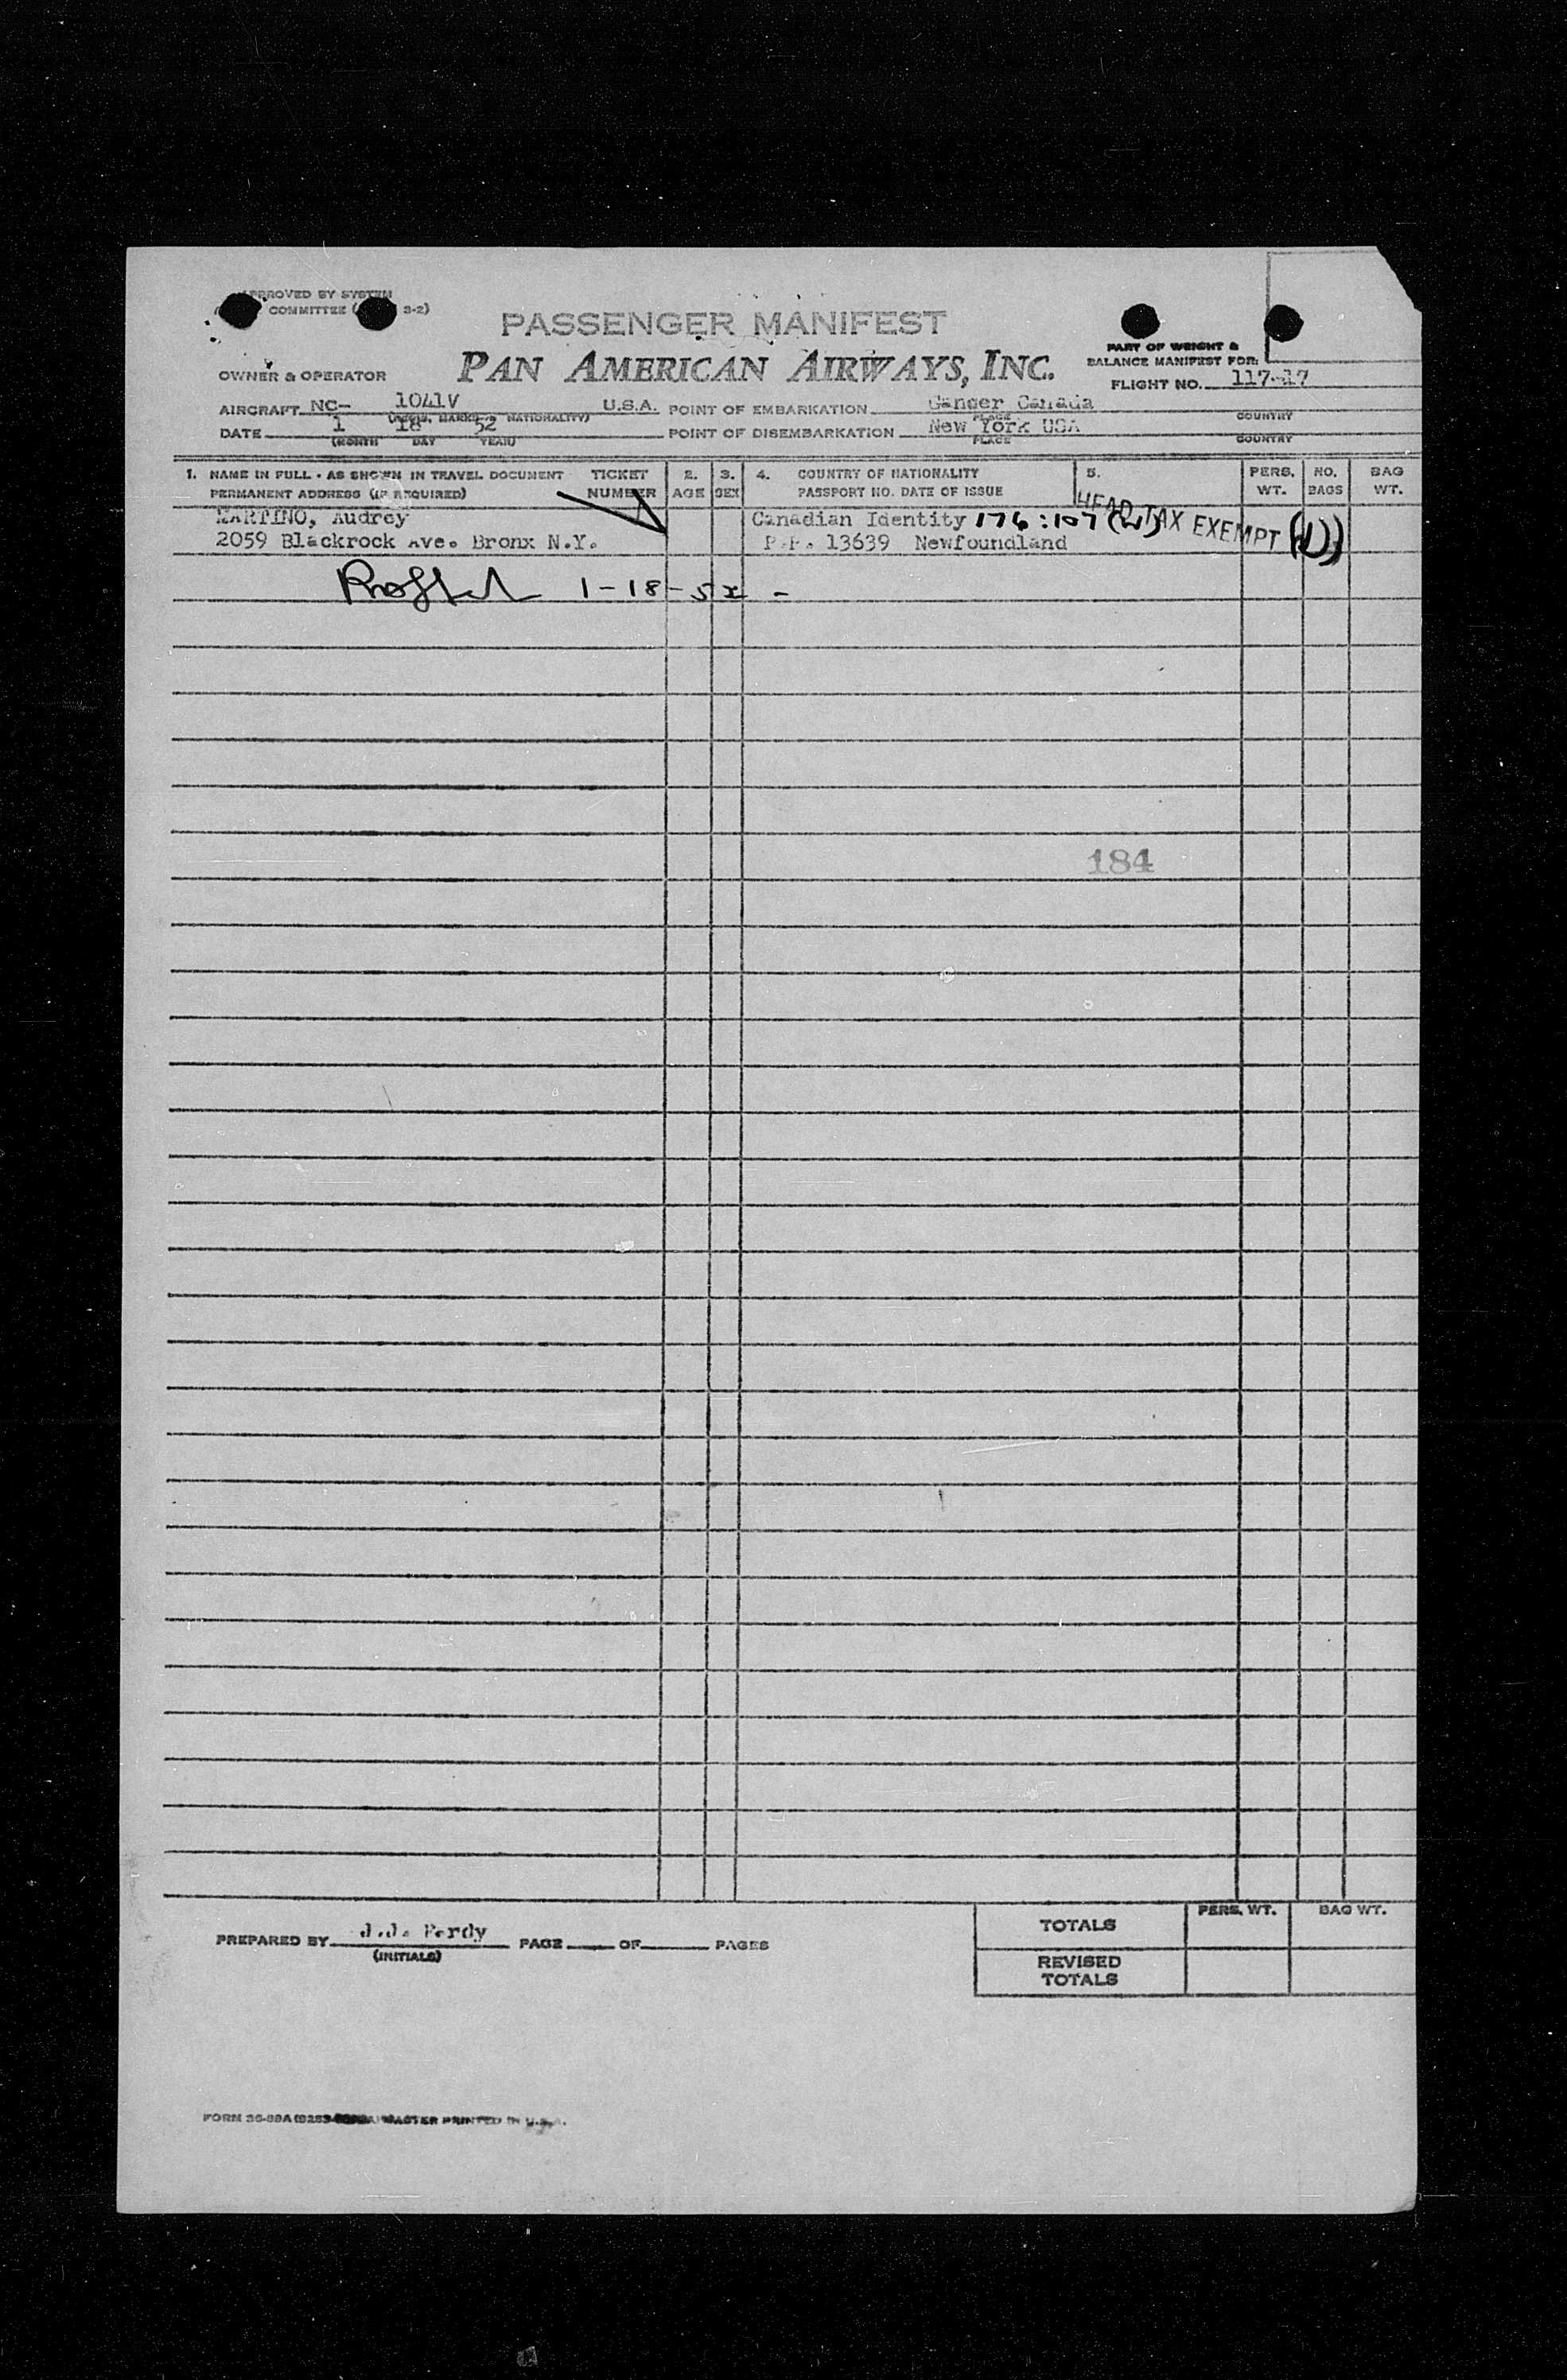 APPROVED BY SYSTEM
COMMITTEE ( 3-2)
PASSENGER MANIFEST
PAN AMERICAN AIRWAYS, INC.
PART OF WEIGHT &
BALANCE MANIFEST FOR:
OWNER & OPERATOR
FLIGHT NO. 117-17
AIRCRAFT NC- 1041V U.S.A. POINT OF EMBARKATION Gander Canada
(REGIS. MARKS NATIONALITY) PLACE COUNTRY
DATE 1 18 52 POINT OF DISEMBARKATION New York USA
(MONTH DAY YEAR) PLACE COUNTRY
1. NAME IN FULL - AS SHOWN IN TRAVEL DOCUMENT TICKET 2. 3. 4. COUNTRY OF NATIONALITY 5. PERS. NO. BAG
PERMANENT ADDRESS (IF REQUIRED) NUMBER AGE SEX PASSPORT NO. DATE OF ISSUE WT. BAGS WT.
MARTINO, Audrey Canadian Identity 176:107 HEAD TAX EXEMPT (1)
2059 Blackrock Ave. Bronx N.Y. P.P. 13639 Newfoundland
1-18-52 -
184
PREPARED BY PAGE OF PAGES
(INITIALS)
TOTALS PERS. WT. BAG WT.
REVISED
TOTALS
PRINTED IN U.S.A.